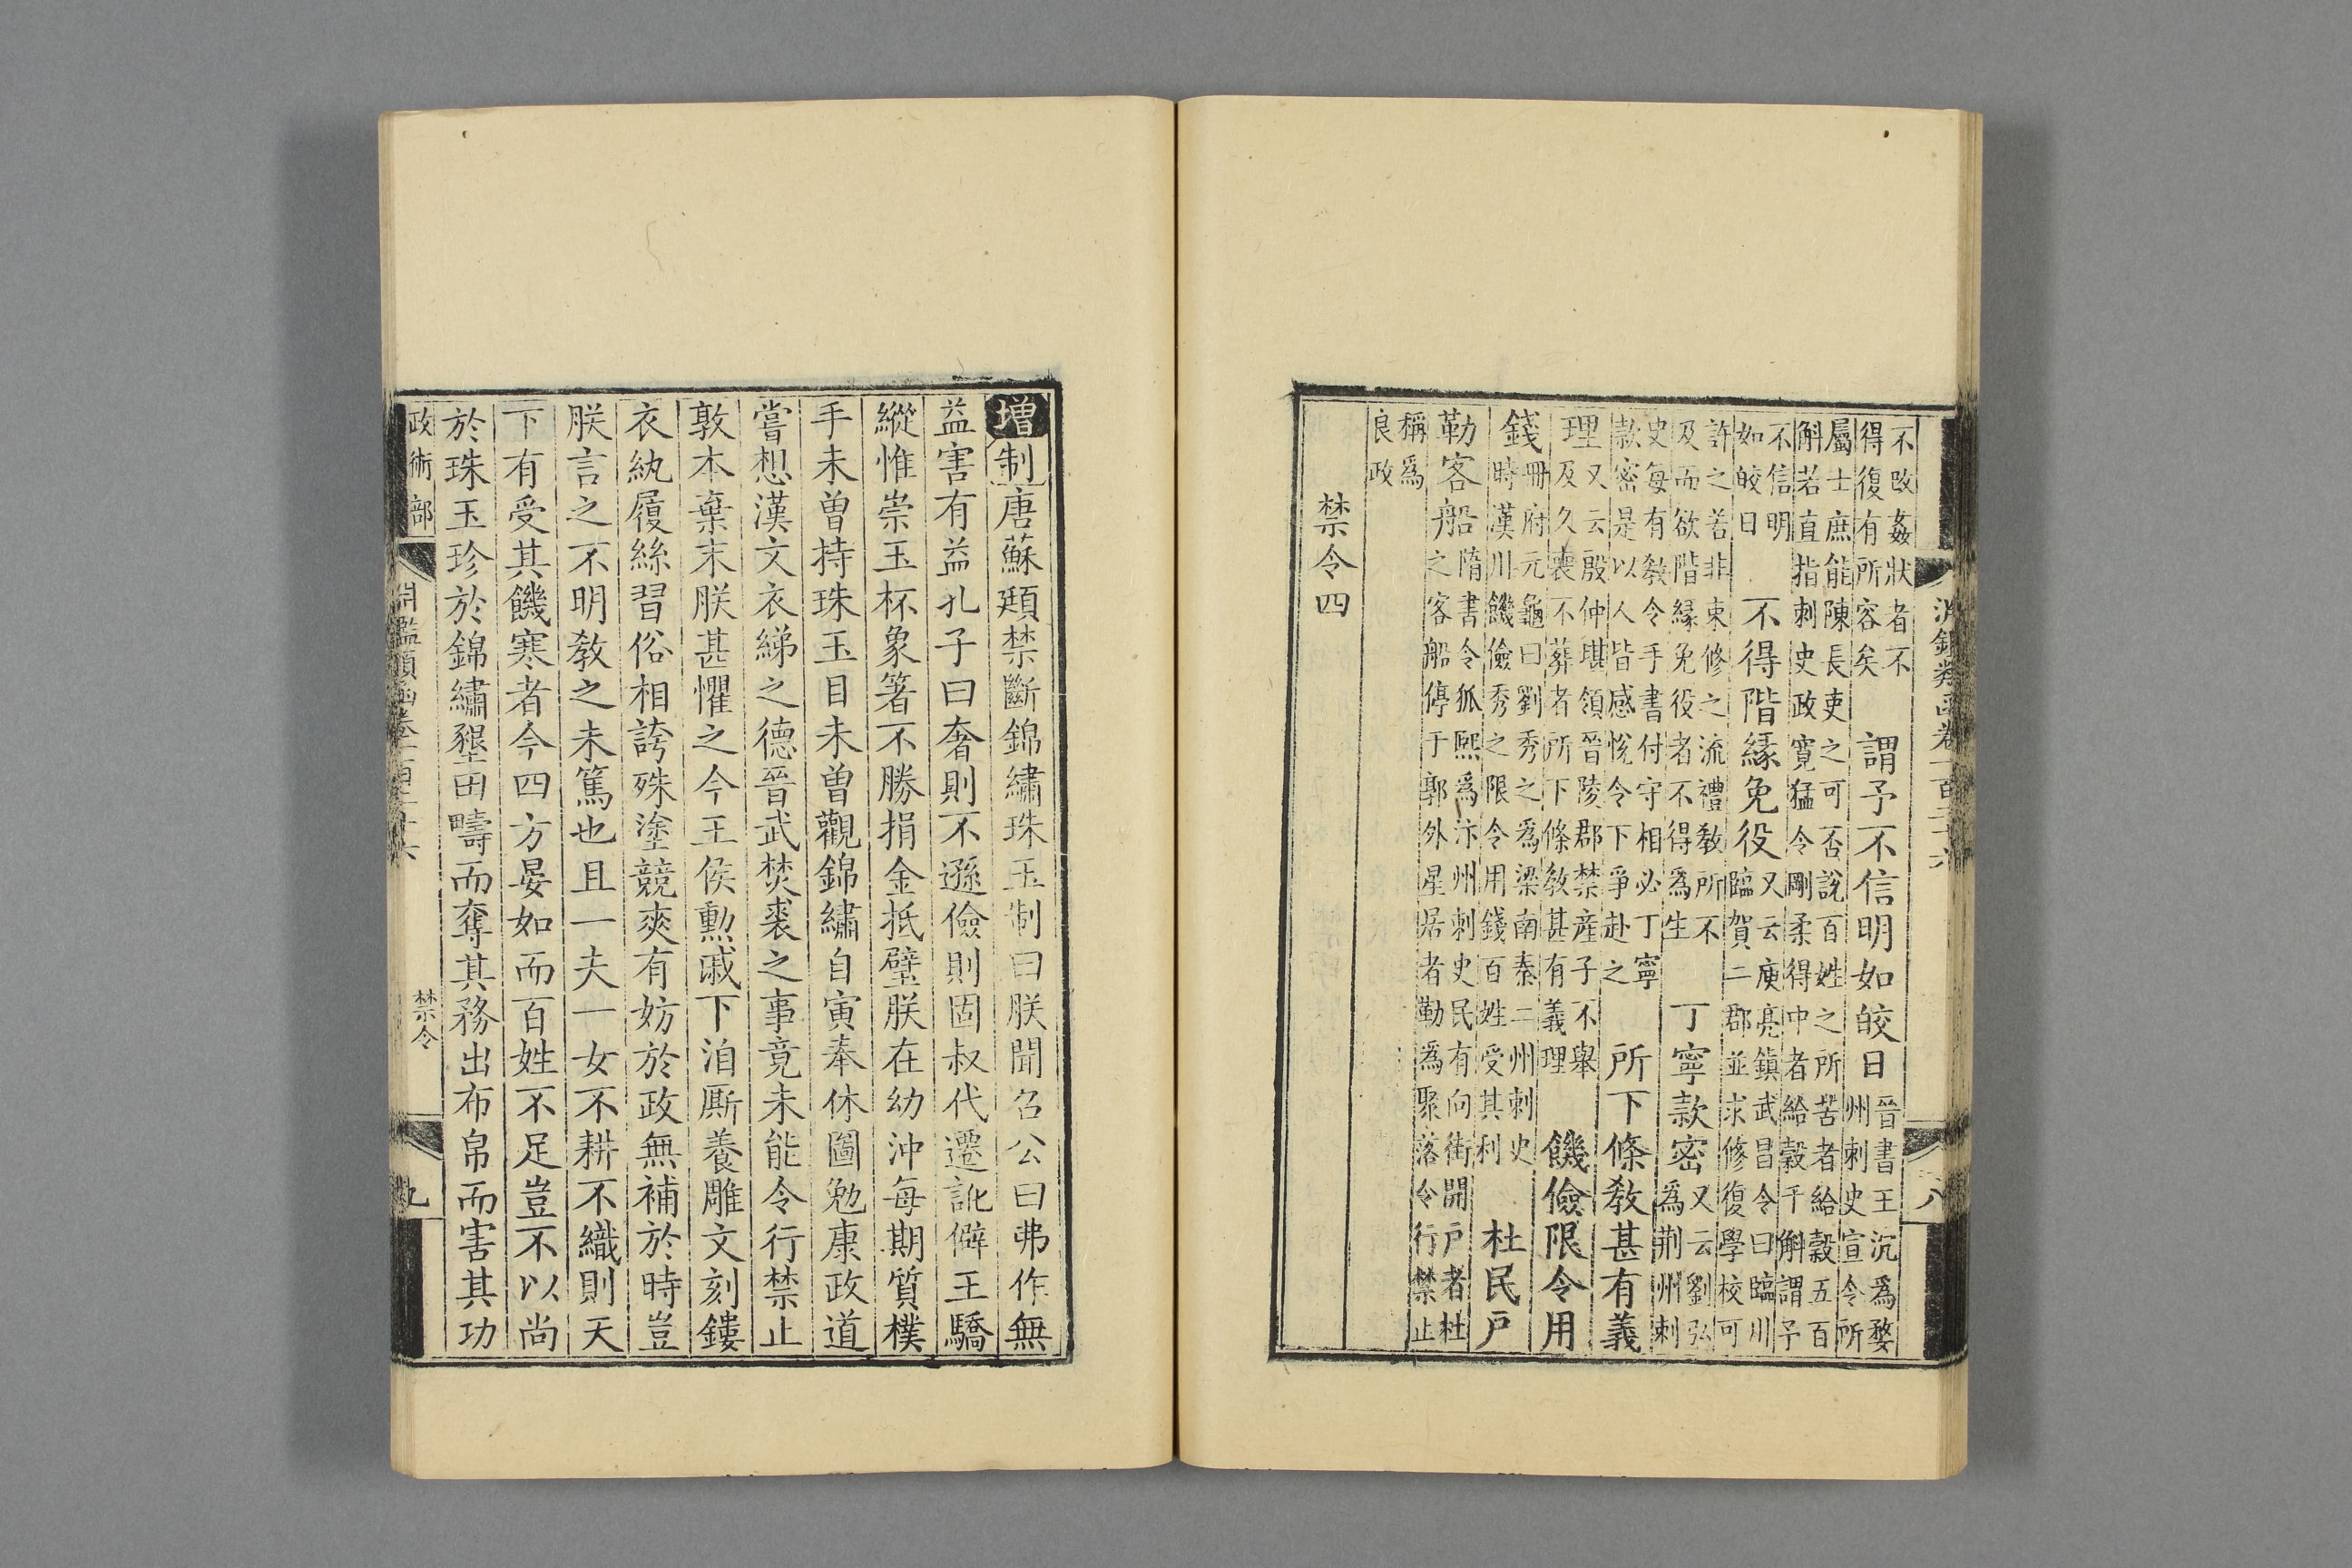 淵鑑類函卷一百二十六
八
不改姦狀者不
得復有所容矣
謂予不信明如皎日
晉書王沉爲婺
州刺史宣令所
屬士庶能陳長吏之可否說百姓之所苦者給穀五百
斛若直指刺史政寬猛令剛柔得中者給穀千斛謂予
不信明
如皎日
不得階緣免役
又云庾亮鎮武昌令曰臨川
臨賀二郡並求修復學校可
許之若非束修之流禮教所不
及而欲階緣免役者不得爲生
丁寧款密
又云劉弘
爲荆州刺
史每有教令手書付守相必丁寧
款密是以人皆感悅令下爭赴之
所下條教甚有義
理
又云殷仲堪領晉陵郡禁產子不舉
及久喪不葬者所下條教甚有義理
饑儉限令用
錢
冊府元龜曰劉秀之爲梁南秦二州刺史
時漢川饑儉秀之限令用錢百姓受其利
杜民戶
勒客船
隋書令狐熙爲汴州刺史民有向街開戶者杜
之客船停于郭外星居者勒爲聚落令行禁止
稱爲
良政
禁令四
增制唐蘇頲禁斷錦繡珠玉制曰朕聞召公曰弗作無
益害有益孔子曰奢則不遜儉則固叔代遷訛僻王驕
縱惟崇玉杯象箸不勝捐金抵璧朕在幼沖每期質樸
手未曾持珠玉目未曾觀錦繡自寅奉休圖勉康政道
嘗想漢文衣綈之德晉武焚裘之事竟未能令行禁止
敦本棄末朕甚懼之今王侯勲戚下洎厮養雕文刻鏤
衣紈履絲習俗相誇殊塗競爽有妨於政無補於時豈
朕言之不明教之未篤也且一夫一女不耕不織則天
下有受其饑寒者今四方晏如而百姓不足豈不以尚
於珠玉珍於錦繡墾田疇而奪其務出布帛而害其功
政術部
淵鑑類函卷一百二十六
禁令
九